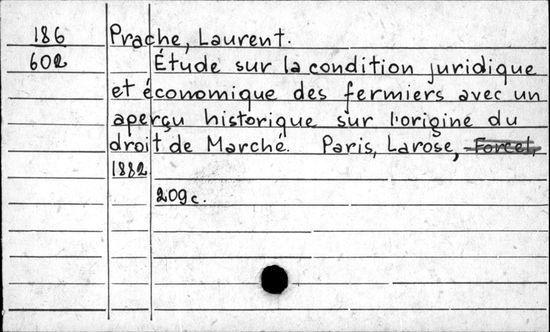 186
602
Prache, Laurent.
Étude sur la condition juridique
et économique des fermiers avec un
aperçu historique sur l'origine du
droit de Marché. Paris, Larose, Forcel,
1882
209 c.